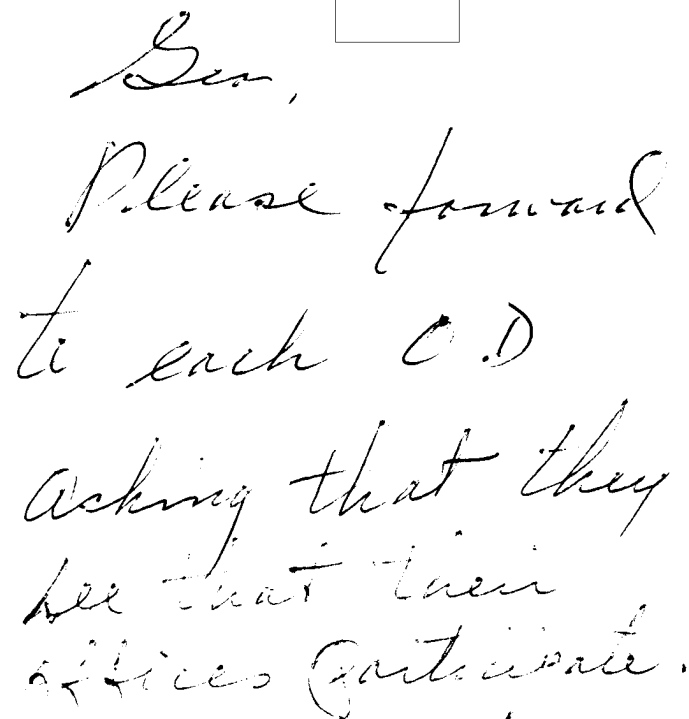 Geo,
Please forward
to each O.D
asking that they
see that their
offices participate.